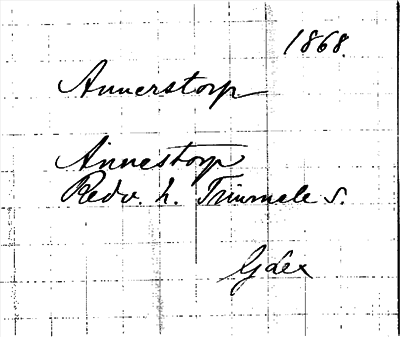 1868.
Annerstorp
Annestorp
Redv. h. Trimmele s.
Gdex